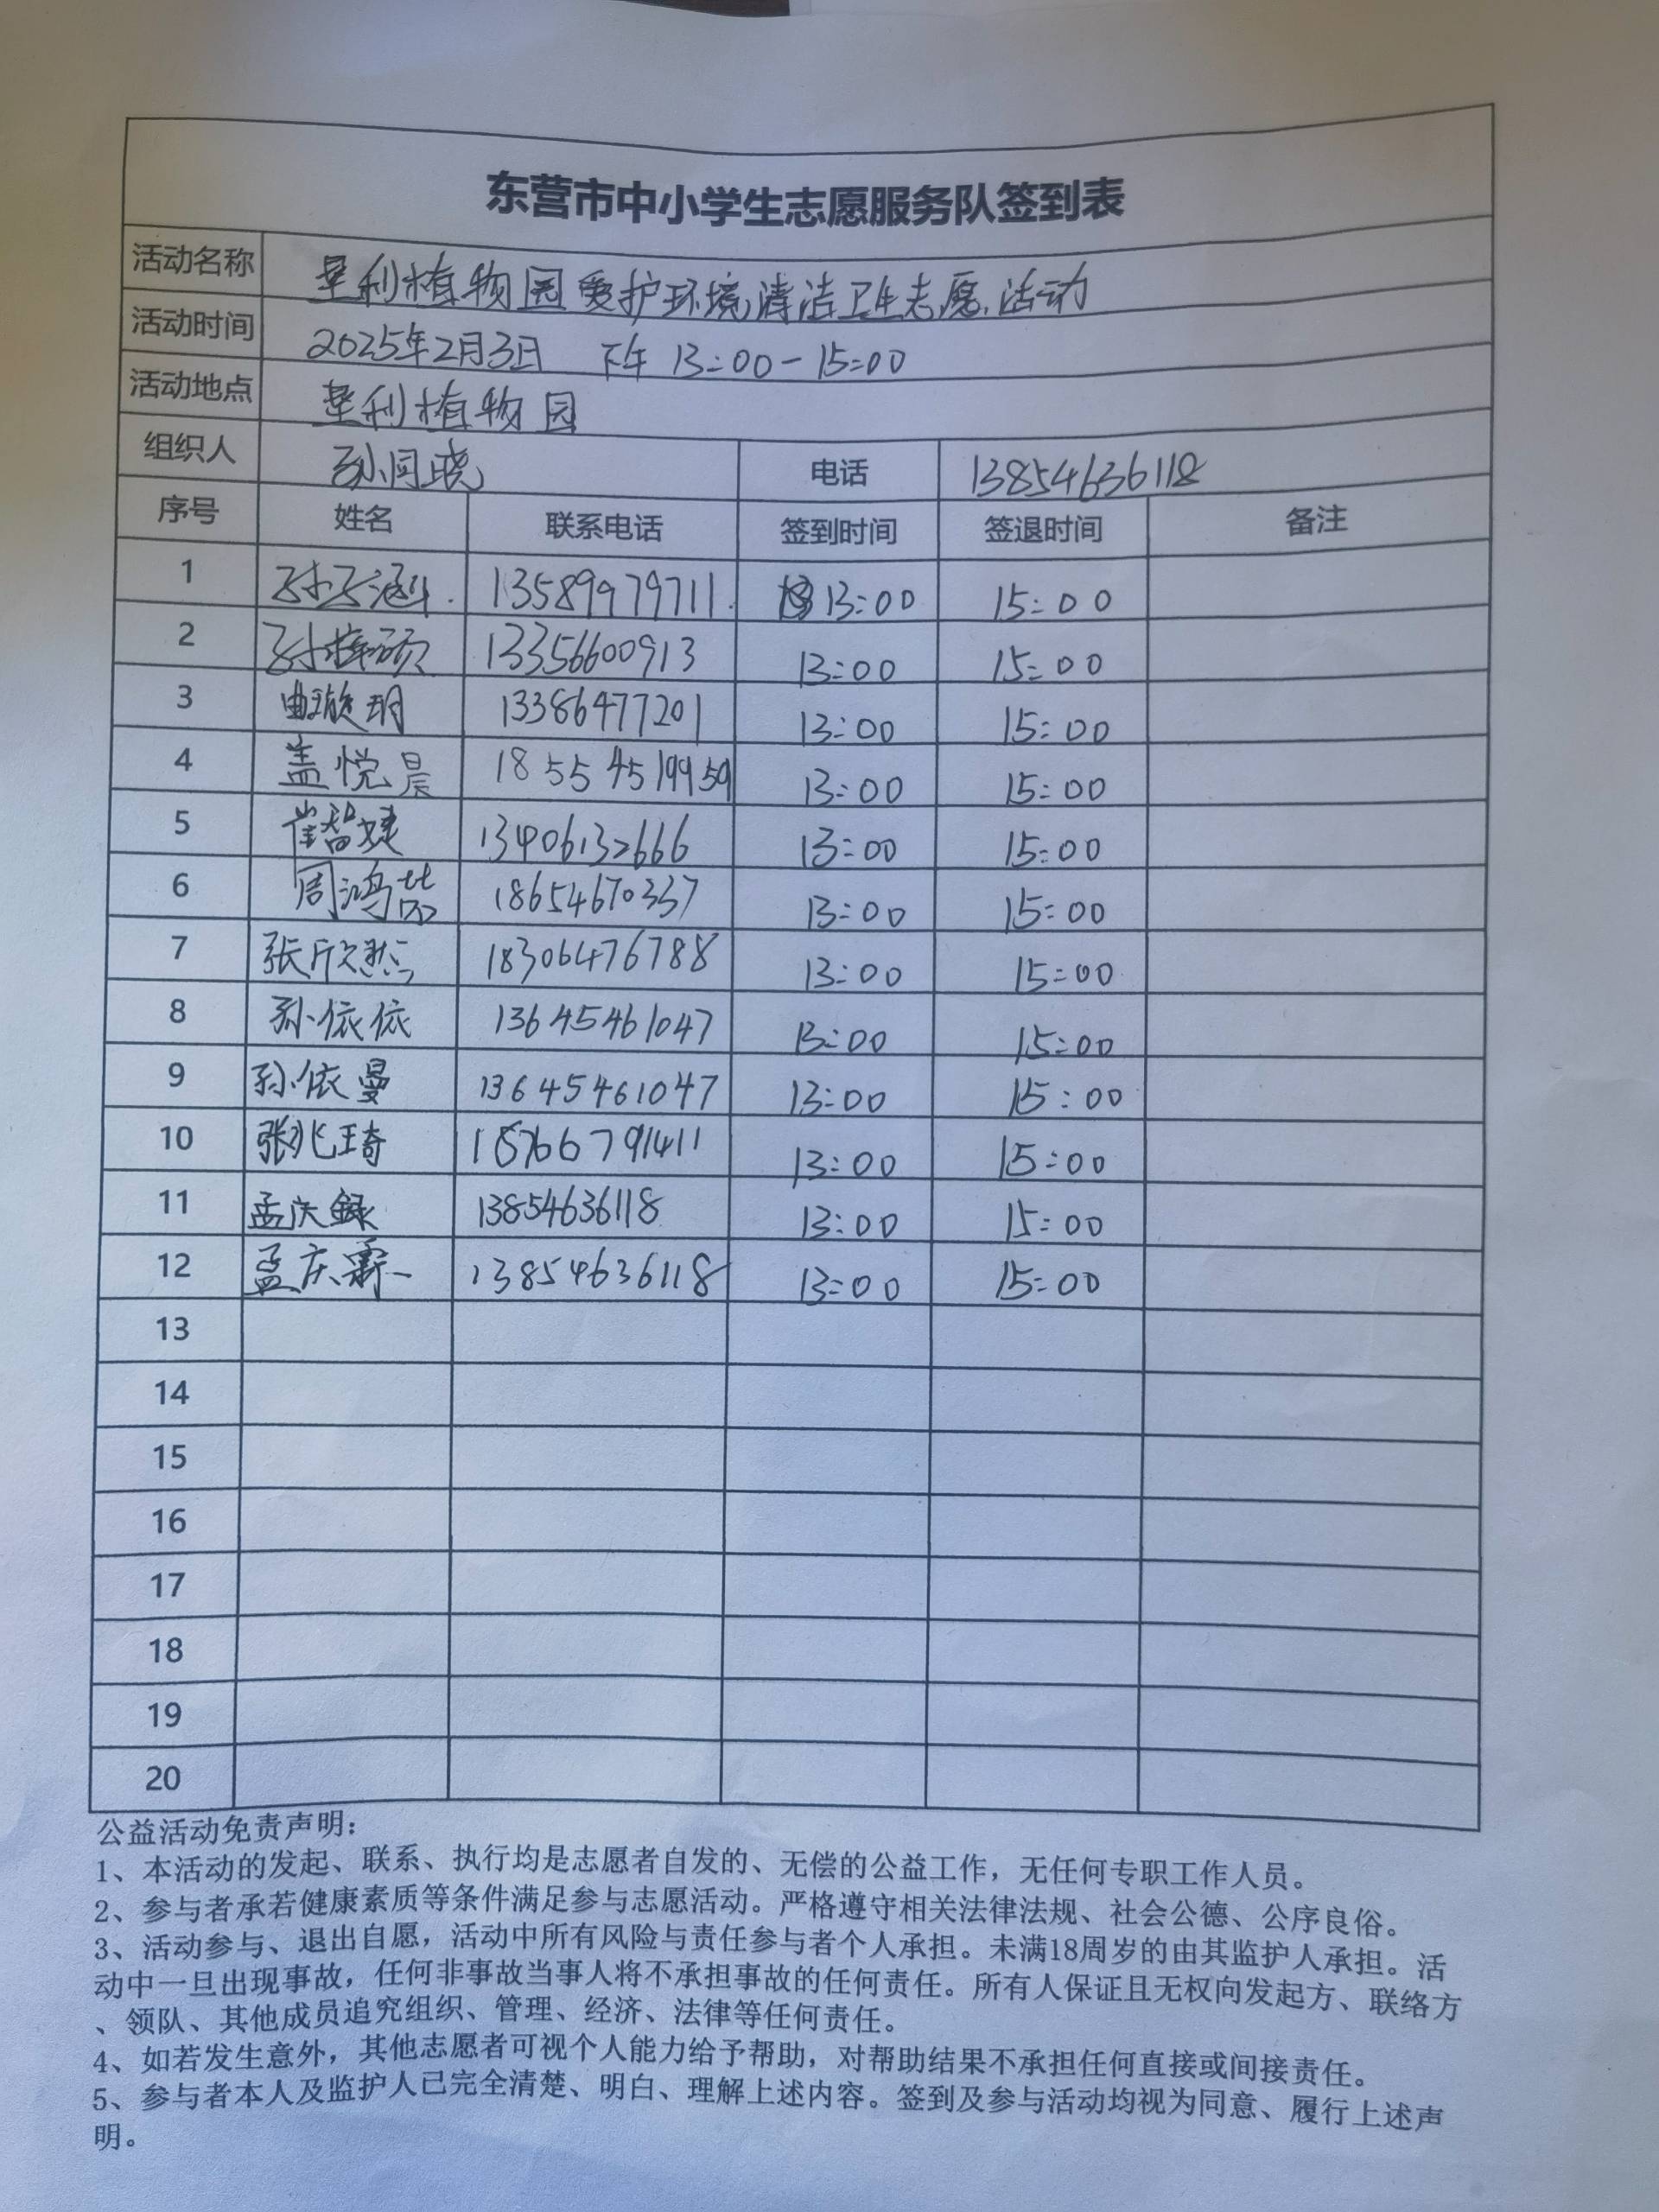 东营市中小学生志愿服务队签到表
活动名称 垦利植物园爱护环境清洁卫生志愿活动
活动时间 2025年2月3日 下午 13:00-15:00
活动地点 垦利植物园
组织人 孙闫晓 电话 13854636118
序号 姓名 联系电话 签到时间 签退时间 备注
1 孙子涵 13589979711 13:00 15:00
2 孙梓硕 13356600913 13:00 15:00
3 曲璇玥 13386477201 13:00 15:00
4 盖悦晨 18554519959 13:00 15:00
5 崔智婕 13406132666 13:00 15:00
6 周鸿喆 18654670337 13:00 15:00
7 张欣然 18306476788 13:00 15:00
8 孙依依 13645461047 13:00 15:00
9 孙依曼 13645461047 13:00 15:00
10 张兆琦 18766791411 13:00 15:00
11 孟庆 13854636118 13:00 15:00
12 孟庆霏 13854636118 13:00 15:00
13
14
15
16
17
18
19
20
公益活动免责声明：
1、本活动的发起、联系、执行均是志愿者自发的、无偿的公益工作，无任何专职工作人员。
2、参与者承若健康素质等条件满足参与志愿活动。严格遵守相关法律法规、社会公德、公序良俗。
3、活动参与、退出自愿，活动中所有风险与责任参与者个人承担。未满18周岁的由其监护人承担。活
动中一旦出现事故，任何非事故当事人将不承担事故的任何责任。所有人保证且无权向发起方、联络方
、领队、其他成员追究组织、管理、经济、法律等任何责任。
4、如若发生意外，其他志愿者可视个人能力给予帮助，对帮助结果不承担任何直接或间接责任。
5、参与者本人及监护人已完全清楚、明白、理解上述内容。签到及参与活动均视为同意、履行上述声
明。